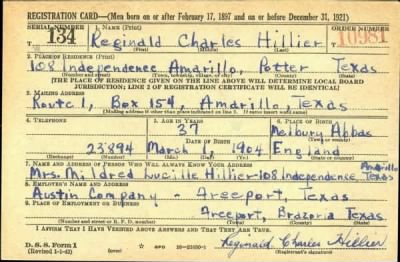 REGISTRATION CARD—(Men born on or after February 17, 1897 and on or before December 31, 1921)
SERIAL NUMBER 1. NAME (Print) ORDER NUMBER
T 134 Reginald Charles Hillier 10981
(First) (Middle) (Last)
2. PLACE OF RESIDENCE (Print)
108 Independence Amarillo, Potter Texas
(Number and street) (Town, township, village, or city) (County) (State)
[THE PLACE OF RESIDENCE GIVEN ON THE LINE ABOVE WILL DETERMINE LOCAL BOARD
JURISDICTION; LINE 2 OF REGISTRATION CERTIFICATE WILL BE IDENTICAL]
3. MAILING ADDRESS
Route 1, Box 154, Amarillo, Texas
[Mailing address if other than place indicated on line 2. If same insert word same]
4. TELEPHONE 5. AGE IN YEARS 6. PLACE OF BIRTH
37 Melbury Abbas
DATE OF BIRTH (Town or county)
23894 March 1904 England
(Exchange) (Number) (Mo.) (Day) (Yr.) (State or country)
7. NAME AND ADDRESS OF PERSON WHO WILL ALWAYS KNOW YOUR ADDRESS Amarillo
Mrs. Mildred Lucille Hillier-108 Independence, Texas
8. EMPLOYER'S NAME AND ADDRESS
Austin Company - Freeport Texas
9. PLACE OF EMPLOYMENT OR BUSINESS
Freeport, Brazoria Texas
(Number and street or R. F. D. number) (Town) (County) (State)
I AFFIRM THAT I HAVE VERIFIED ABOVE ANSWERS AND THAT THEY ARE TRUE.
D. S. S. Form 1
(Revised 1-1-42) GPO 16—21630-1 Reginald Charles Hillier
(Registrant's signature)